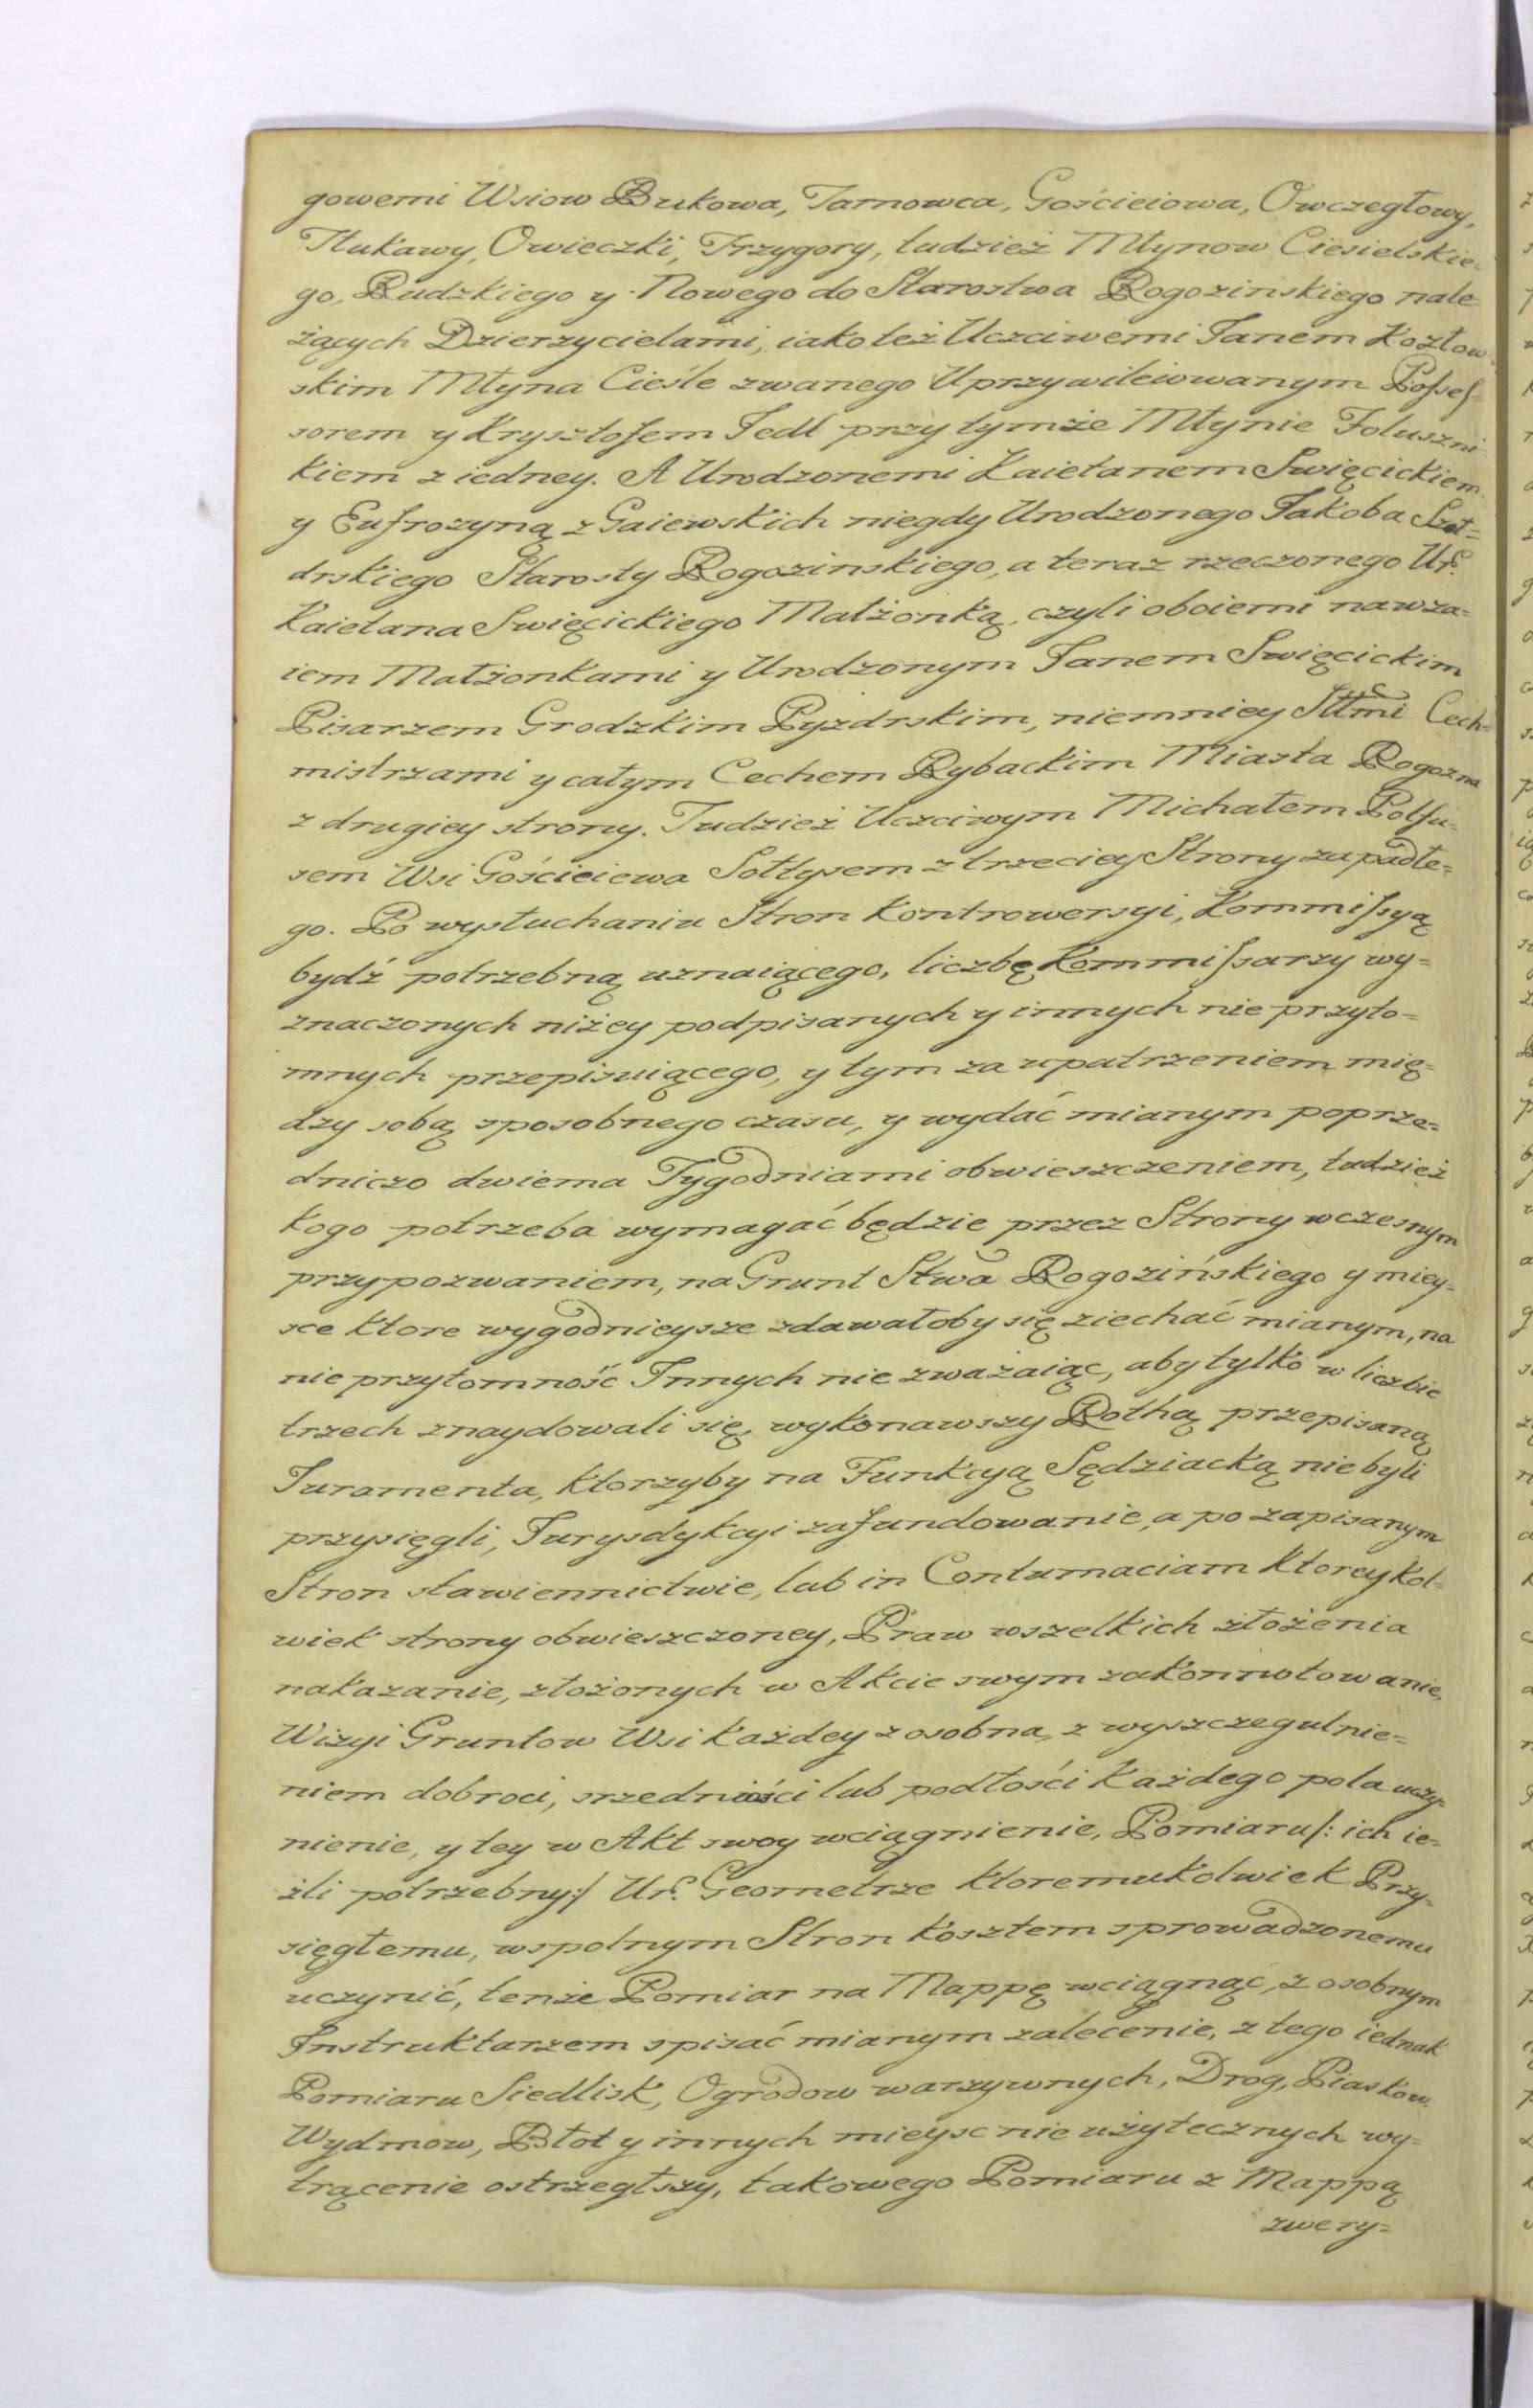 gowemi Wsiow Bukowa, Tarnowca, Gościeiowa, Owczegłowy,
Tłukawy, Owieczki, Trzygory, tudzież Młynow Ciesielskie-
go, Rudzkiego y Nowego do Starostwa Rogozinskiego nale-
żących Dzierzycielami, iako też Uczciwemi Janem Kozłow-
skim Młyna Cieśle zwanego Uprzywileiowanym Possess-
sorem y Krysztofem Jedl przy tymże Młynie Foluszni-
kiem z iedney. A Urodzonemi Kaietanem Swięcickiem
y Eufrozyną z Gaiewskich niegdy Urodzonego Jakoba Szoł-
drskiego Starosty Rogozinskiego, a teraz rzeczonego Ur.
Kaietana Swięcickiego Małżonką, czyli oboiemi nawza-
iem Małżonkami y Urodzonym Janem Swięcickim
Pisarzem Grodzkim Pyzdrskim, niemniey Sttmi Cech-
mistrzami y całym Cechem Rybackim Miasta Rogozna
z drugiey strony. Tudzież Uczciwym Michałem Polfu-
sem Wsi Gościeiewa Sołtysem z trzeciey Strony zapadłe-
go. Po wysłuchaniu Stron Kontrowersyi, Kommissyą
bydź potrzebną uznaiącego, liczbę Kommissarzy wy-
znaczonych niżey podpisanych y innych nie przyto-
mnych przepisuiącego, y tym za upatrzeniem mię-
dzy sobą sposobnego czasu, y wydać mianym poprze-
dniczo dwiema Tygodniami obwieszczeniem, tudzież
kogo potrzeba wymagać będzie przez Strony wczesnym
przypozwaniem, na Grunt Stwa Rogozińskiego y miey-
sce ktore wygodnieysze zdawałoby się ziechać mianym, na
nie przytomność Innych nie zważaiąc, aby tylko w liczbie
trzech znaydowali się, wykonawszy Rothą przepisaną
Juramenta, ktorzyby na Funkcyą Sędziacką nie byli
przysięgli, Jurysdykcyi zafundowanie, a po zapisanym
Stron stawiennictwie, lub in Contumaciam ktoreykol-
wiek strony obwieszczoney, Praw wszelkich złożenia
nakazanie, złożonych w Akcie swym zakonnotowanie,
Wizyi Gruntow Wsi każdey z osobna, z wyszczegulnie-
niem dobroci, srzedniości lub podłości każdego pola uczy-
nienie, y tey w Akt swoy wciągnienie, Pomiaru /: ich ie-
żli potrzebny :/ Ur. Geometrze ktoremukolwiek Przy-
sięgłemu, wspolnym Stron kosztem sprowadzonemu
uczynić, tenże Pomiar na Mappę wciągnąc, z osobnym
Instruktarzem spisać mianym zalecenie, z tego iednak
Pomiaru Siedlisk, Ogrodow warzywnych, Drog, Piaskow,
Wydmow, Błot y innych mieysc nie użytecznych wy-
trącenie ostrzegłszy, takowego Pomiaru z Mappą
zwery-